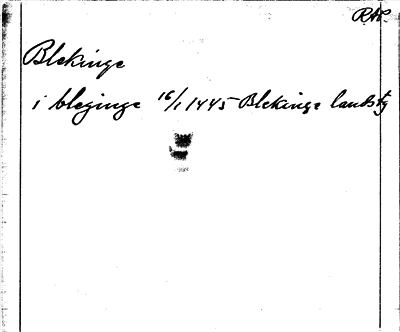 RAP.
Blekinge
i bleginge 16/1 1445 Blekinge landstg